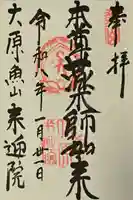 奉拝
本尊薬師如来
令和八年一月廿一日
大原魚山来迎院